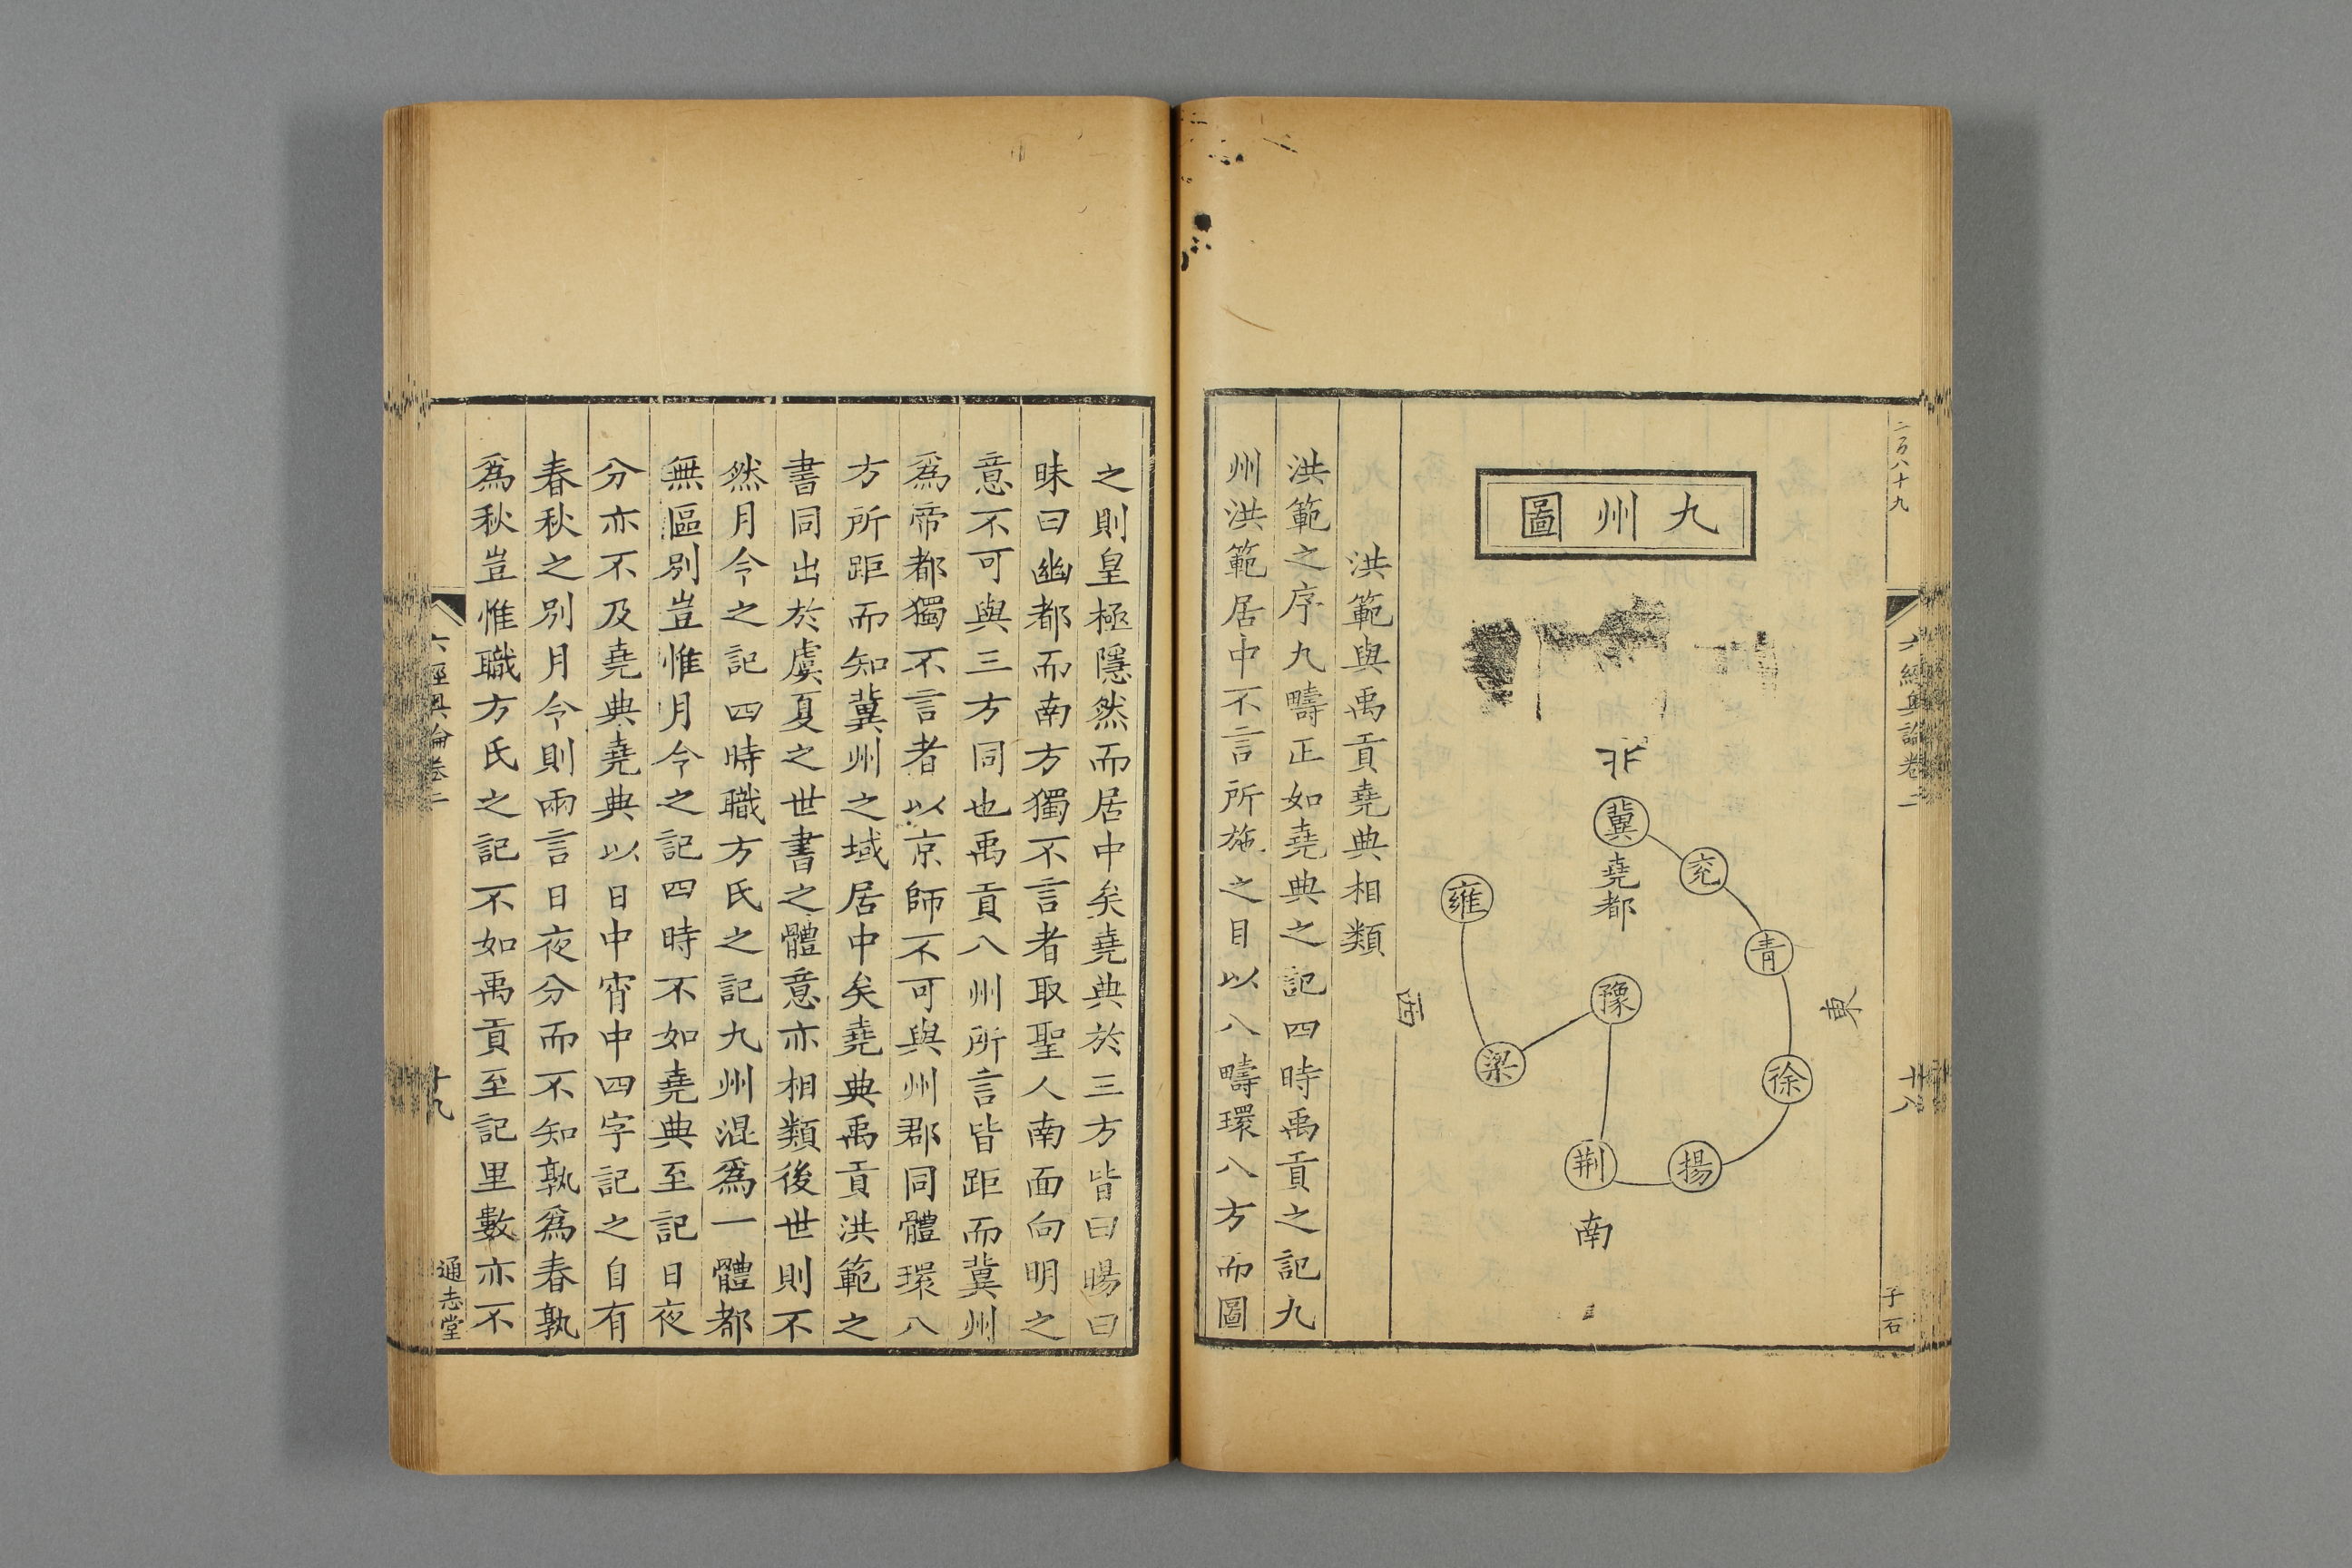 二百八十九
六經奥論卷二
十八
子石
九州圖
北
冀
堯都
兖
青
東
徐
揚
荆
南
豫
梁
雍
西
洪範與禹貢堯典相類
洪範之序九疇正如堯典之記四時禹貢之記九
州洪範居中不言所施之目以八疇環八方而圖
之則皇極隱然而居中矣堯典於三方皆曰暘曰
昧曰幽都而南方獨不言者取聖人南面向明之
意不可與三方同也禹貢八州所言皆距而冀州
爲帝都獨不言者以京師不可與州郡同體環八
方所距而知冀州之域居中矣堯典禹貢洪範之
書同出於虞夏之世書之體意亦相類後世則不
然月令之記四時職方氏之記九州混爲一體都
無區別豈惟月令之記四時不如堯典至記日夜
分亦不及堯典堯典以日中宵中四字記之自有
春秋之別月令則兩言日夜分而不知孰爲春孰
爲秋豈惟職方氏之記不如禹貢至記里數亦不
六經奥論卷二
十九
通志堂